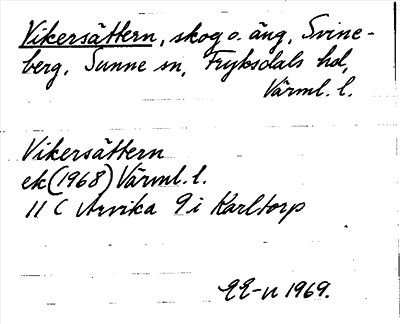 Vikersättern, skog o. äng, Svine-
berg, Sunne sn, Fryksdals hd,
Värml. l.
Vikersättern
ek (1968) Värml. l.
11 C Arvika 9 i Karltorp
1969.